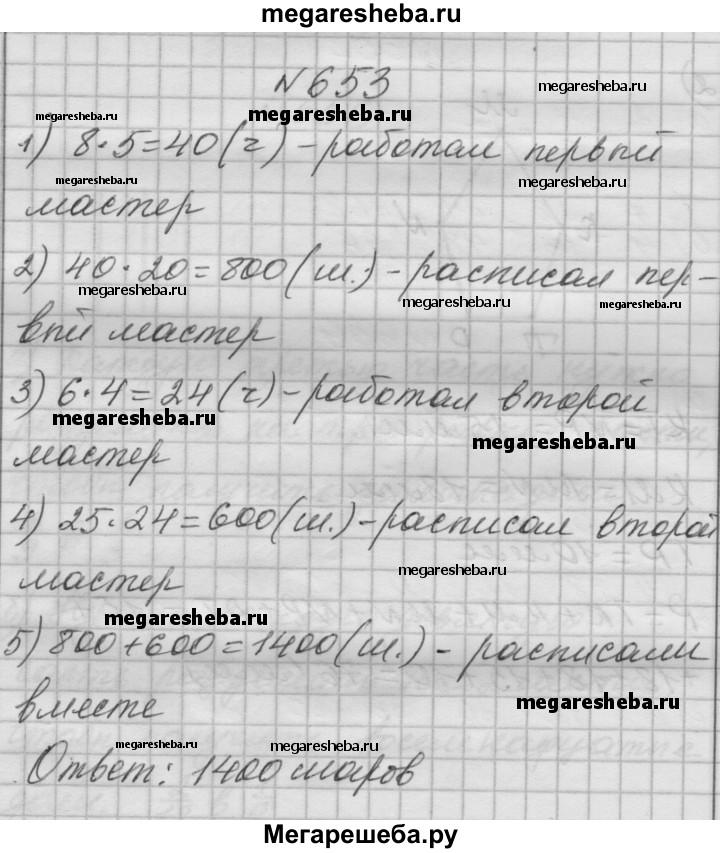 megaresheba.ru
№653
megaresheba.ru
megaresheba.ru
megaresheba.ru
1) 8·5=40(ч) - работал первый
megaresheba.ru
megaresheba.ru
мастер
2) 40·20=800(ш.) - расписал пер-
megaresheba.ru
megaresheba.ru
megaresheba.ru
вый мастер
3) 6·4=24(ч) - работал второй
megaresheba.ru
megaresheba.ru
мастер
4) 25·24=600(ш.) - расписал второй
megaresheba.ru
мастер
megaresheba.ru
5) 800+600=1400(ш.) - расписали
megaresheba.ru
вместе
megaresheba.ru
megaresheba.ru
Ответ: 1400 шаров
Мегарешеба.ру